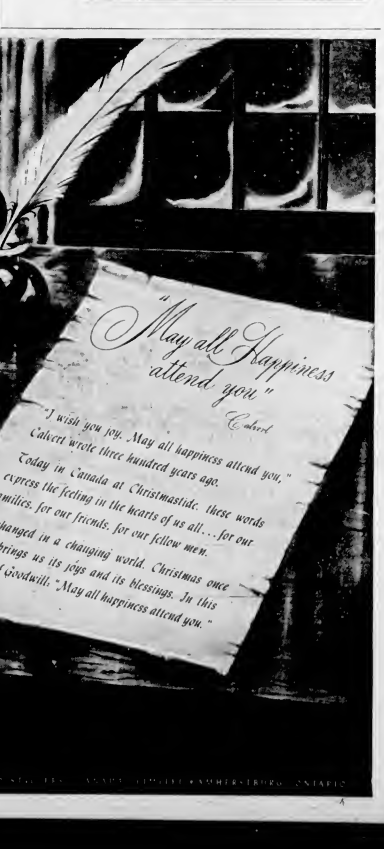 "May all Happiness
attend you"
Calvert
"I wish you joy. May all happiness attend you,"
Calvert wrote three hundred years ago.
Today in Canada at Christmastide, these words
express the feeling in the hearts of us all...for our
families, for our friends, for our fellow men.
changed in a changing world, Christmas once
brings us its joys and its blessings. In this
of Goodwill: "May all happiness attend you."
CANADA LIMITED • AMHERSTBURG ONTARIO